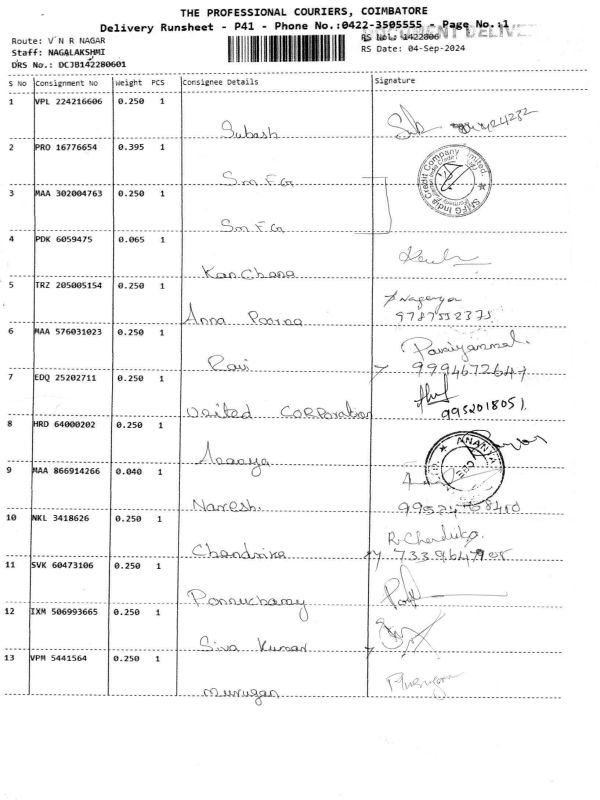 THE PROFESSIONAL COURIERS, COIMBATORE
Delivery Runsheet - P41 - Phone No.:0422-3505555 - Page No.:1
Route: V N R NAGAR
RS No.: 1422806
Staff: NAGALAKSHMI
RS Date: 04-Sep-2024
DRS No.: DCJB142280601
S No Consignment No Weight PCS Consignee Details Signature
1 VPL 224216606 0.250 1
Subash
2 PRO 16776654 0.395 1
Sm F G
SMFG India Credit Company Limited.
3 MAA 302004763 0.250 1
Sm F G
4 PDK 6059475 0.065 1
Kanchana
5 TRZ 205005154 0.250 1
Anna Poorna
9787552375
6 MAA 576031023 0.250 1
Ravi
9994672647
7 EDQ 25202711 0.250 1
United Corporation
9952018051
8 HRD 64000202 0.250 1
ANANYA
9 MAA 866914266 0.040 1
Naresh.
10 NKL 3418626 0.250 1
Chandrika
11 SVK 60473106 0.250 1
12 IXM 506993665 0.250 1
Siva Kumar
13 VPM 5441564 0.250 1
murugan